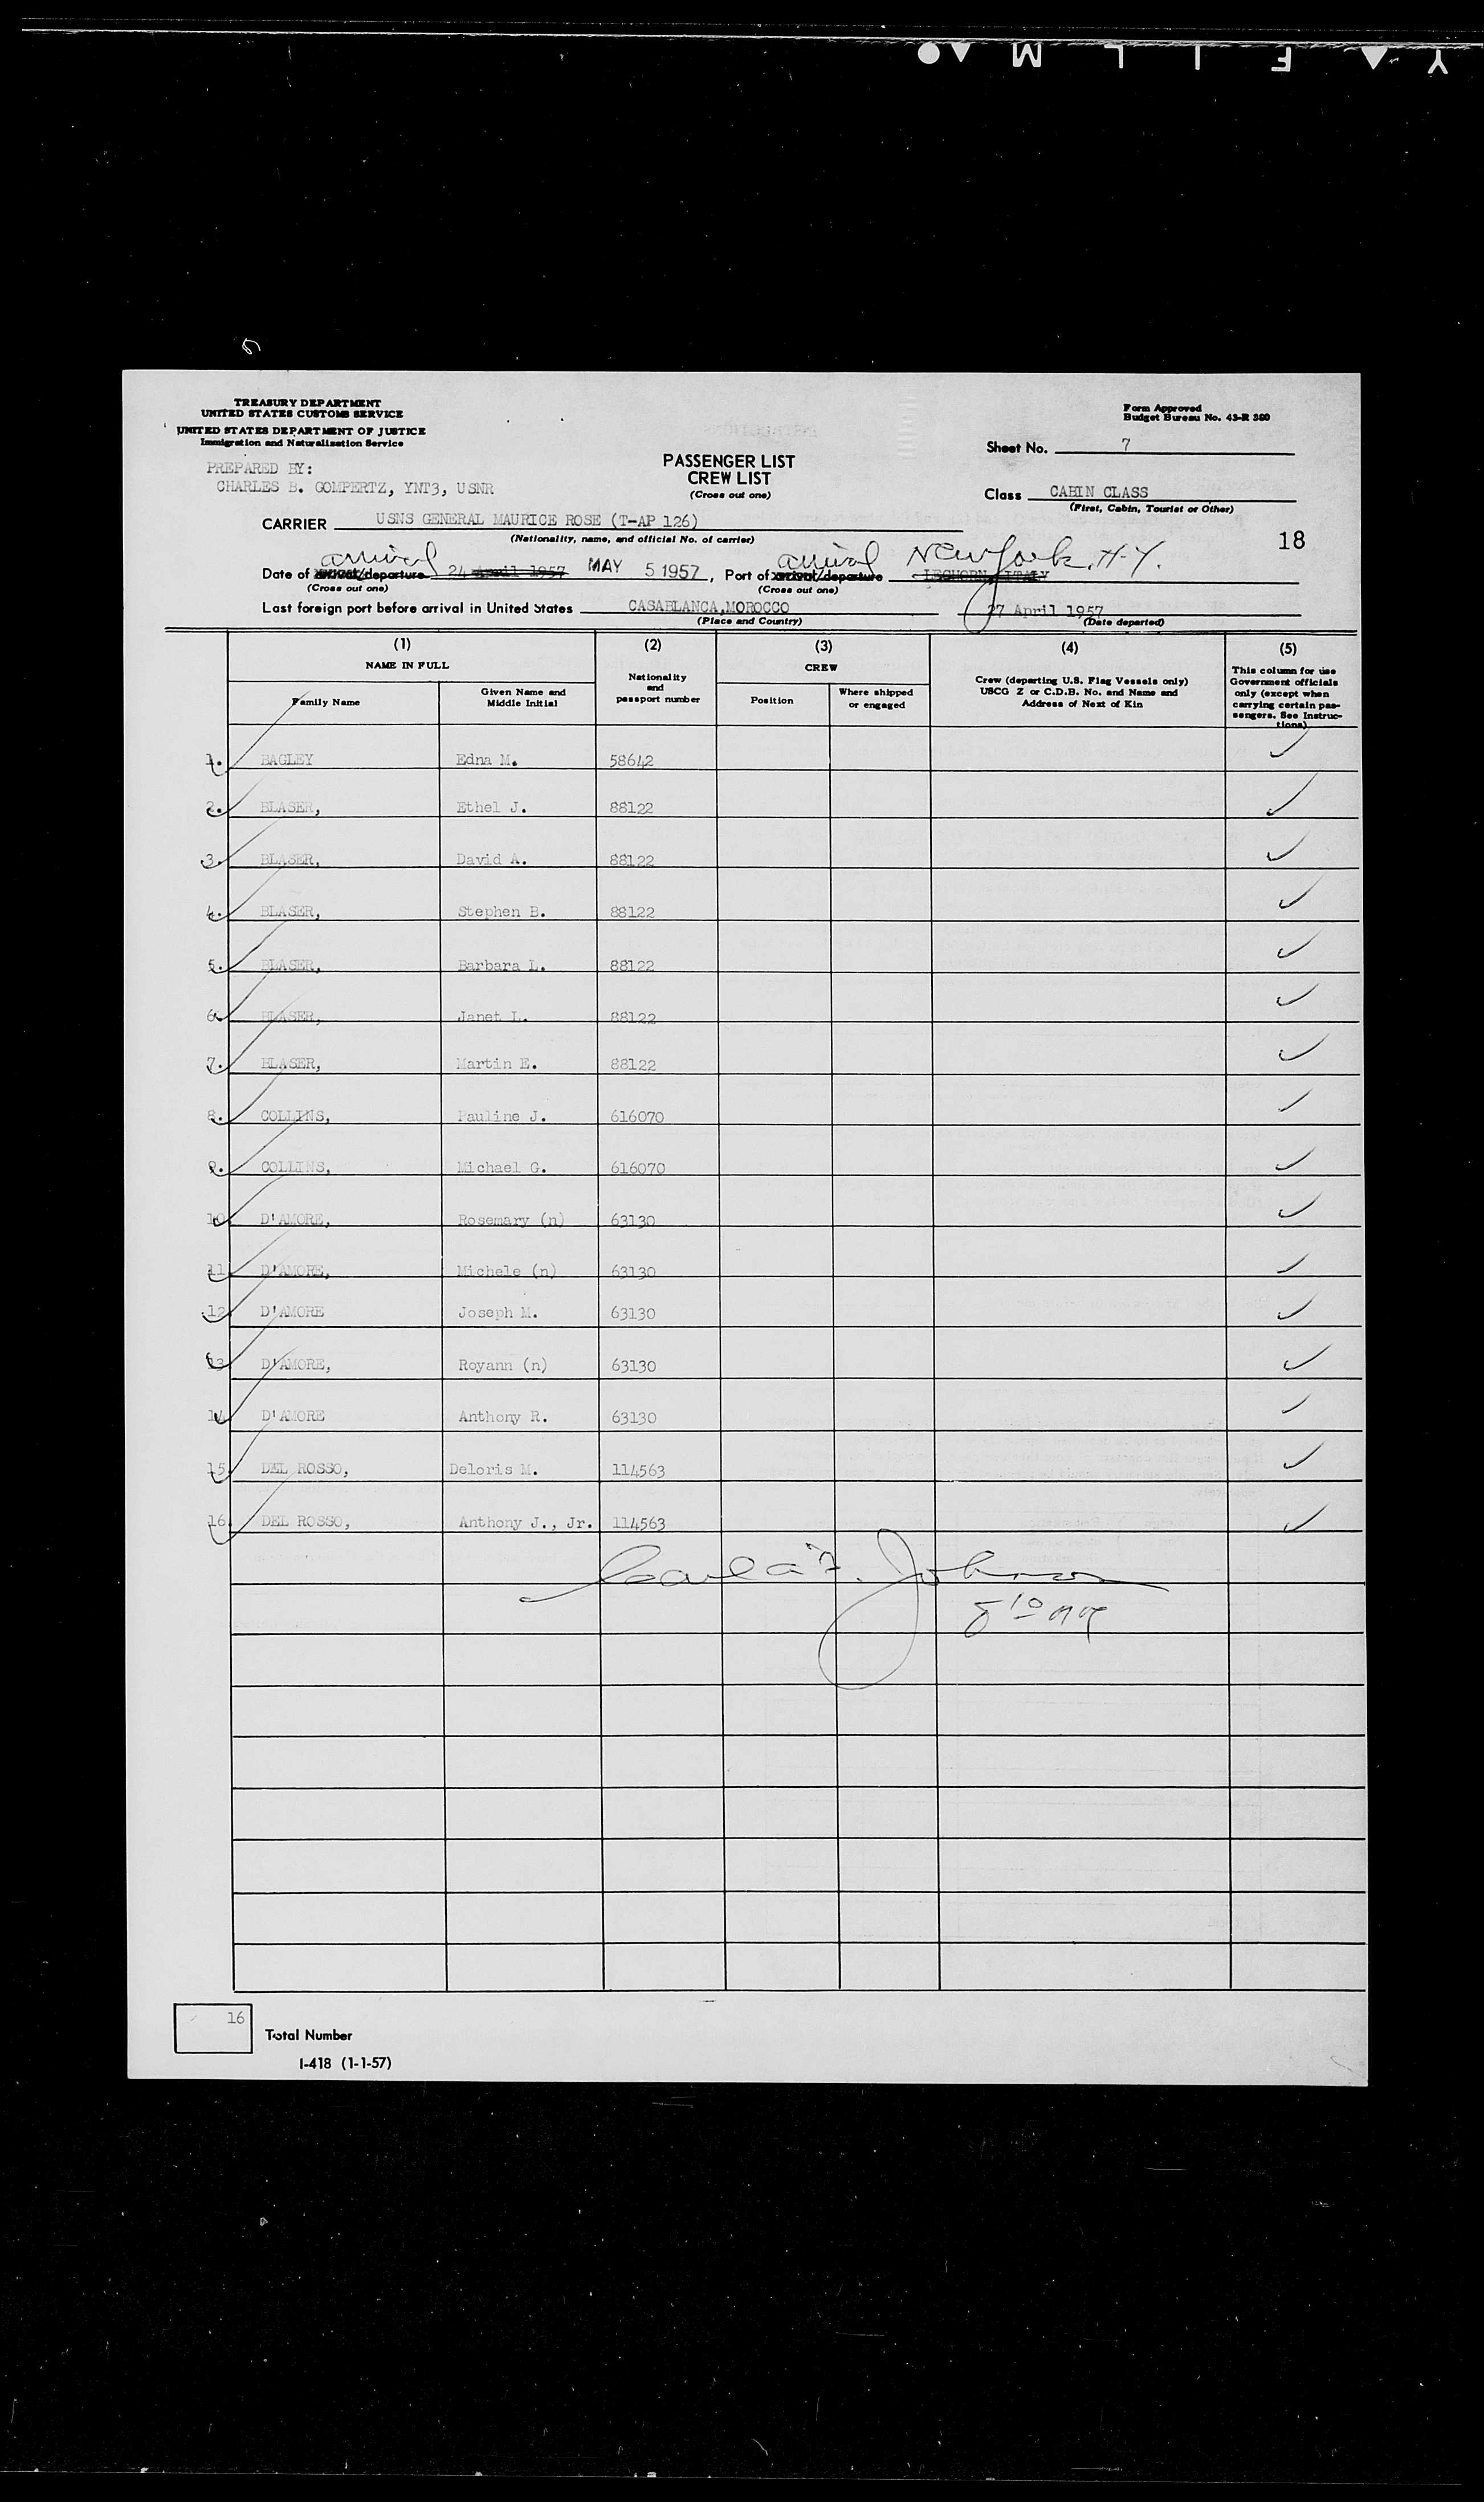 Y F I L M
TREASURY DEPARTMENT
UNITED STATES CUSTOMS SERVICE
UNITED STATES DEPARTMENT OF JUSTICE
Immigration and Naturalization Service
Form Approved
Budget Bureau No. 43-R 380
Sheet No. 7
PREPARED BY:
CHARLES B. GOMPERTZ, YNT3, USNR
PASSENGER LIST
CREW LIST
(Cross out one)
Class CABIN CLASS
(First, Cabin, Tourist or Other)
CARRIER USNS GENERAL MAURICE ROSE (T-AP 126)
(Nationality, name, and official No. of carrier)
18
arrival arrival New York, N.Y.
Date of arrival/departure 24 April 1957 MAY 5 1957, Port of arrival/departure LEGHORN, ITALY
(Cross out one) (Cross out one)
Last foreign port before arrival in United States CASABLANCA, MOROCCO 27 April 1957
(Place and Country) (Date departed)
(1) (2) (3) (4) (5)
NAME IN FULL Nationality and passport number CREW Crew (departing U.S. Flag Vessels only) USCG Z or C.D.B. No. and Name and Address of Next of Kin This column for use Government officials only (except when carrying certain passengers. See Instructions)
Family Name Given Name and Middle Initial Position Where shipped or engaged
1. BAGLEY Edna M. 58642
2. BLASER, Ethel J. 88122
3. BLASER, David A. 88122
4. BLASER, Stephen B. 88122
5. BLASER, Barbara L. 88122
6. BLASER, Janet L. 88122
7. BLASER, Martin E. 88122
8. COLLINS, Pauline J. 616070
9. COLLINS, Michael G. 616070
10 D'AMORE, Rosemary (n) 63130
11 D'AMORE, Michele (n) 63130
12 D'AMORE Joseph M. 63130
13 D'AMORE, Royann (n) 63130
14 D'AMORE Anthony R. 63130
15 DEL ROSSO, Deloris M. 114563
16 DEL ROSSO, Anthony J., Jr. 114563
Johnson
16
Total Number
I-418 (1-1-57)